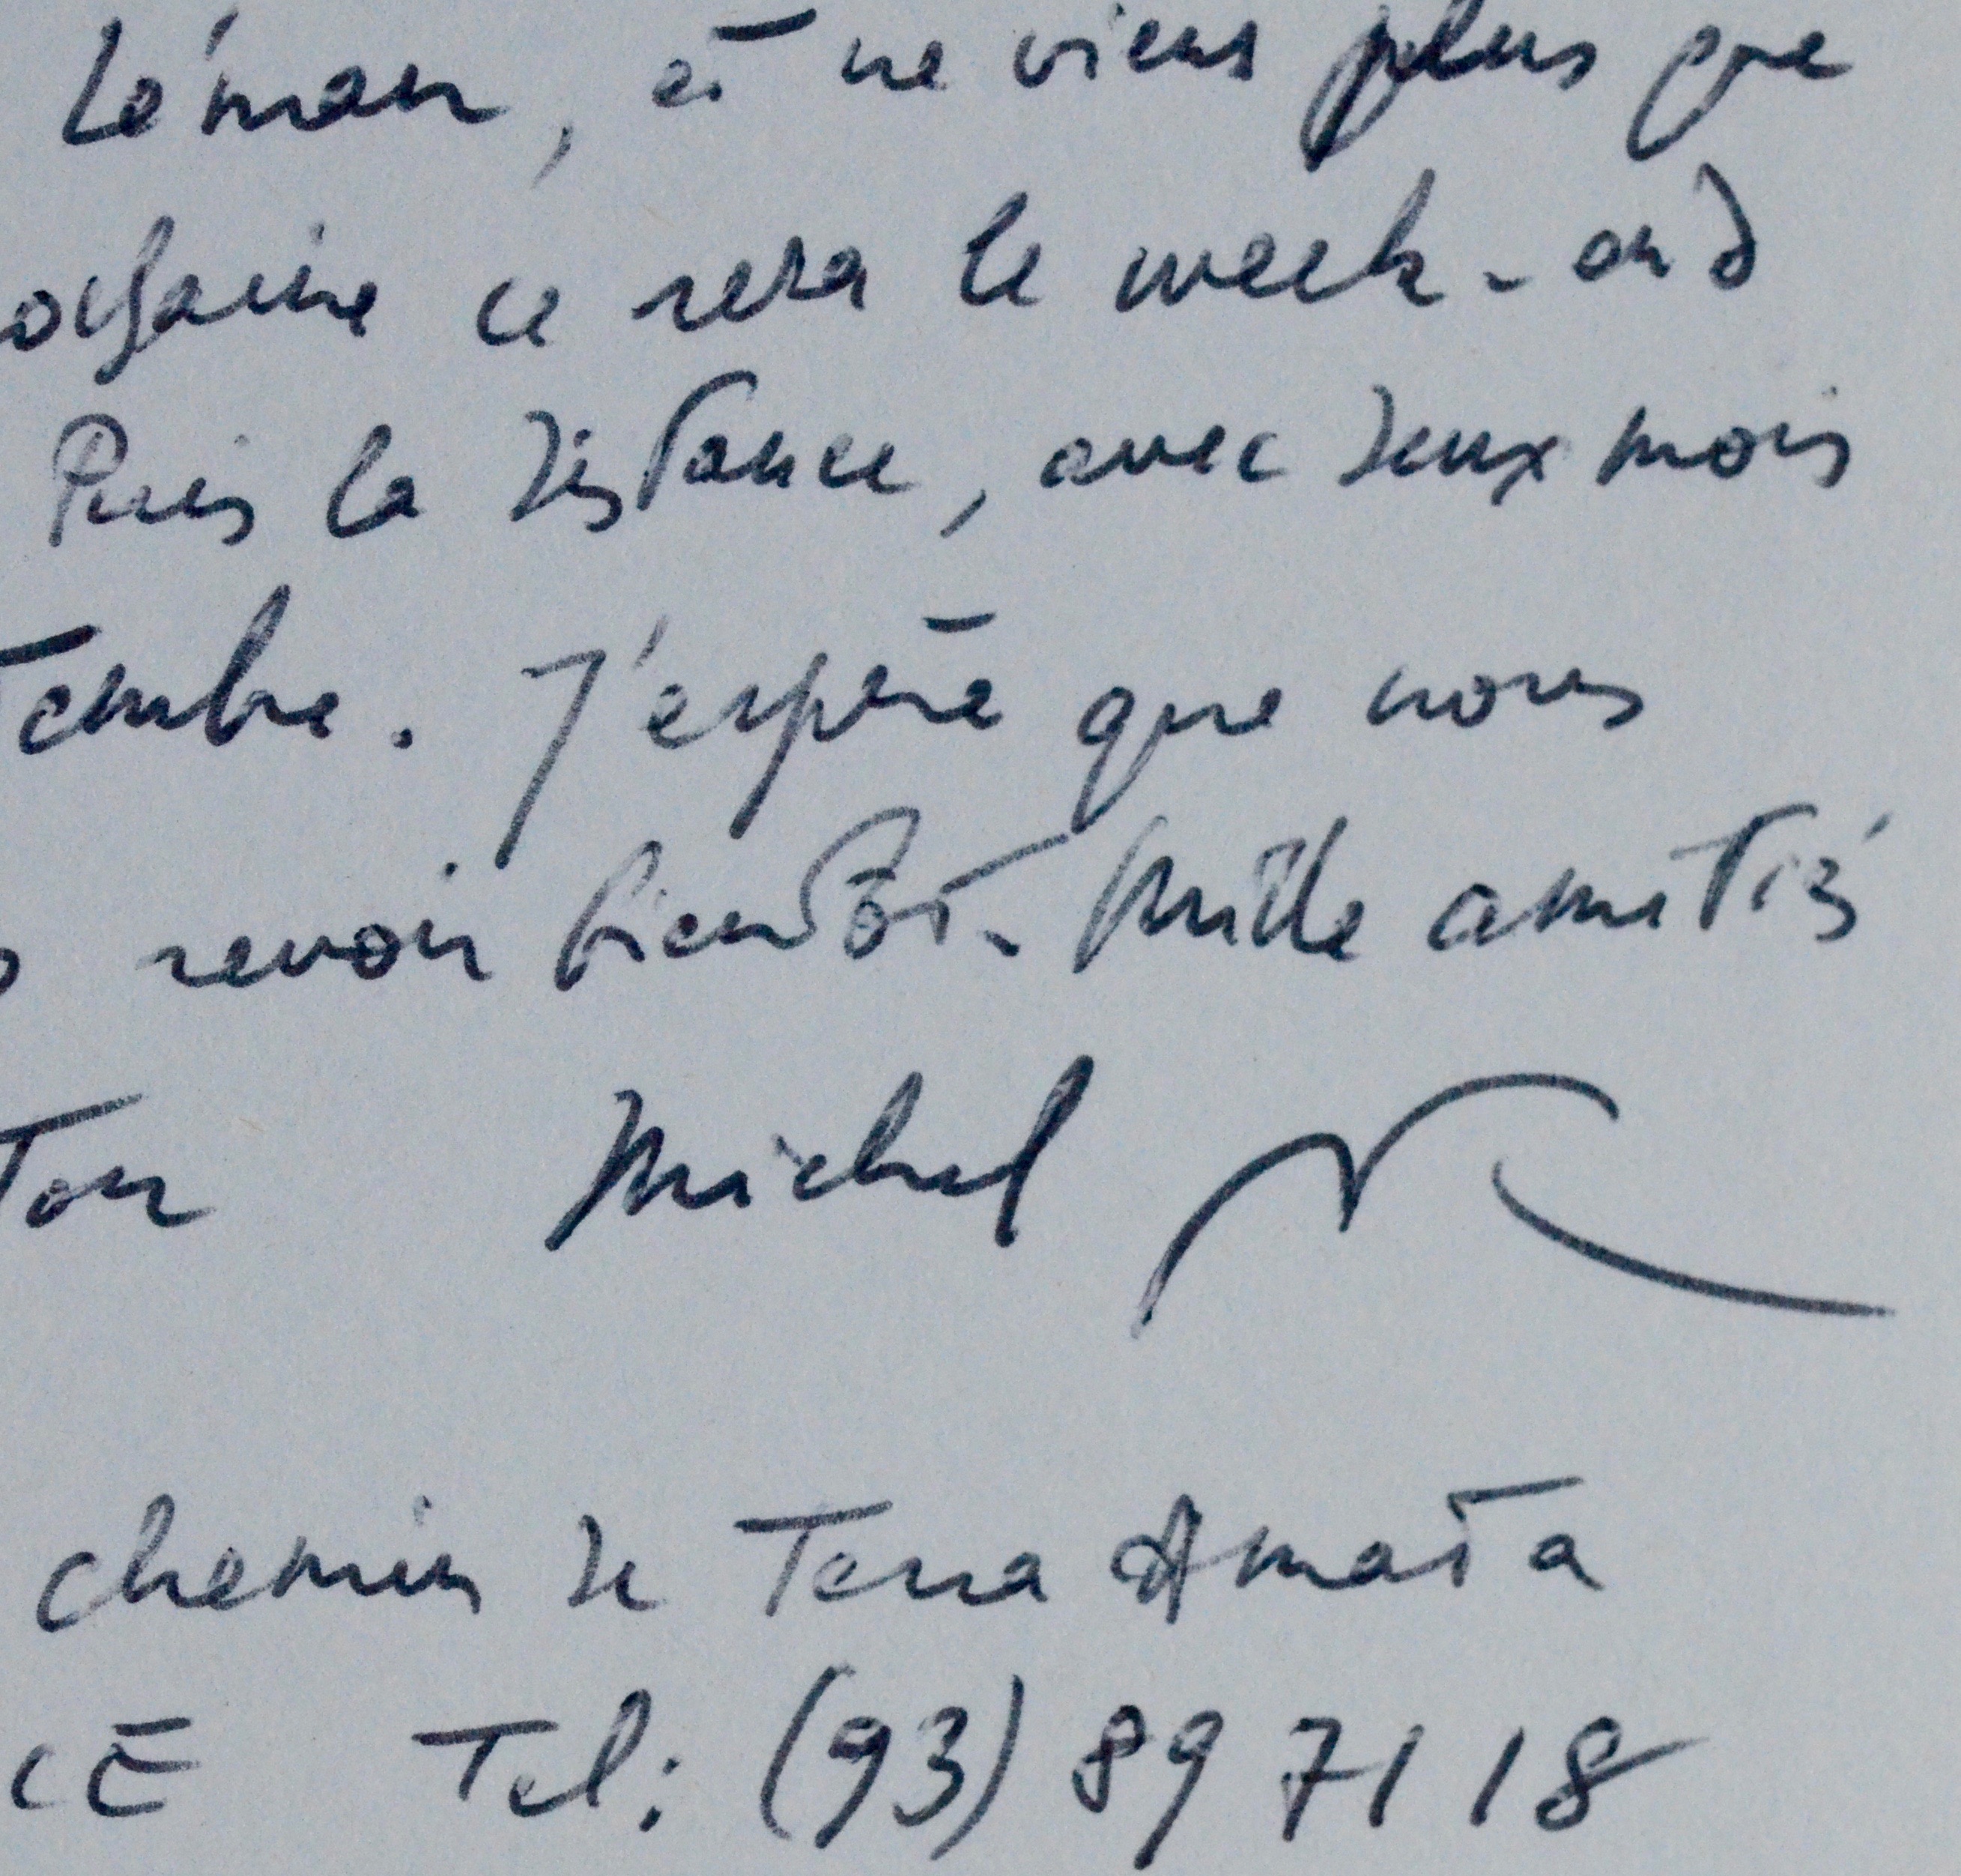 Léman, et ne viens plus que
ce sera le week-end
Puis la distance, avec deux mois
tembre. J'espère que nous
revoir bientôt. Mille amitiés
Ton Michel
chemin de Terra Amata
CE Tel: (93) 89 71 18